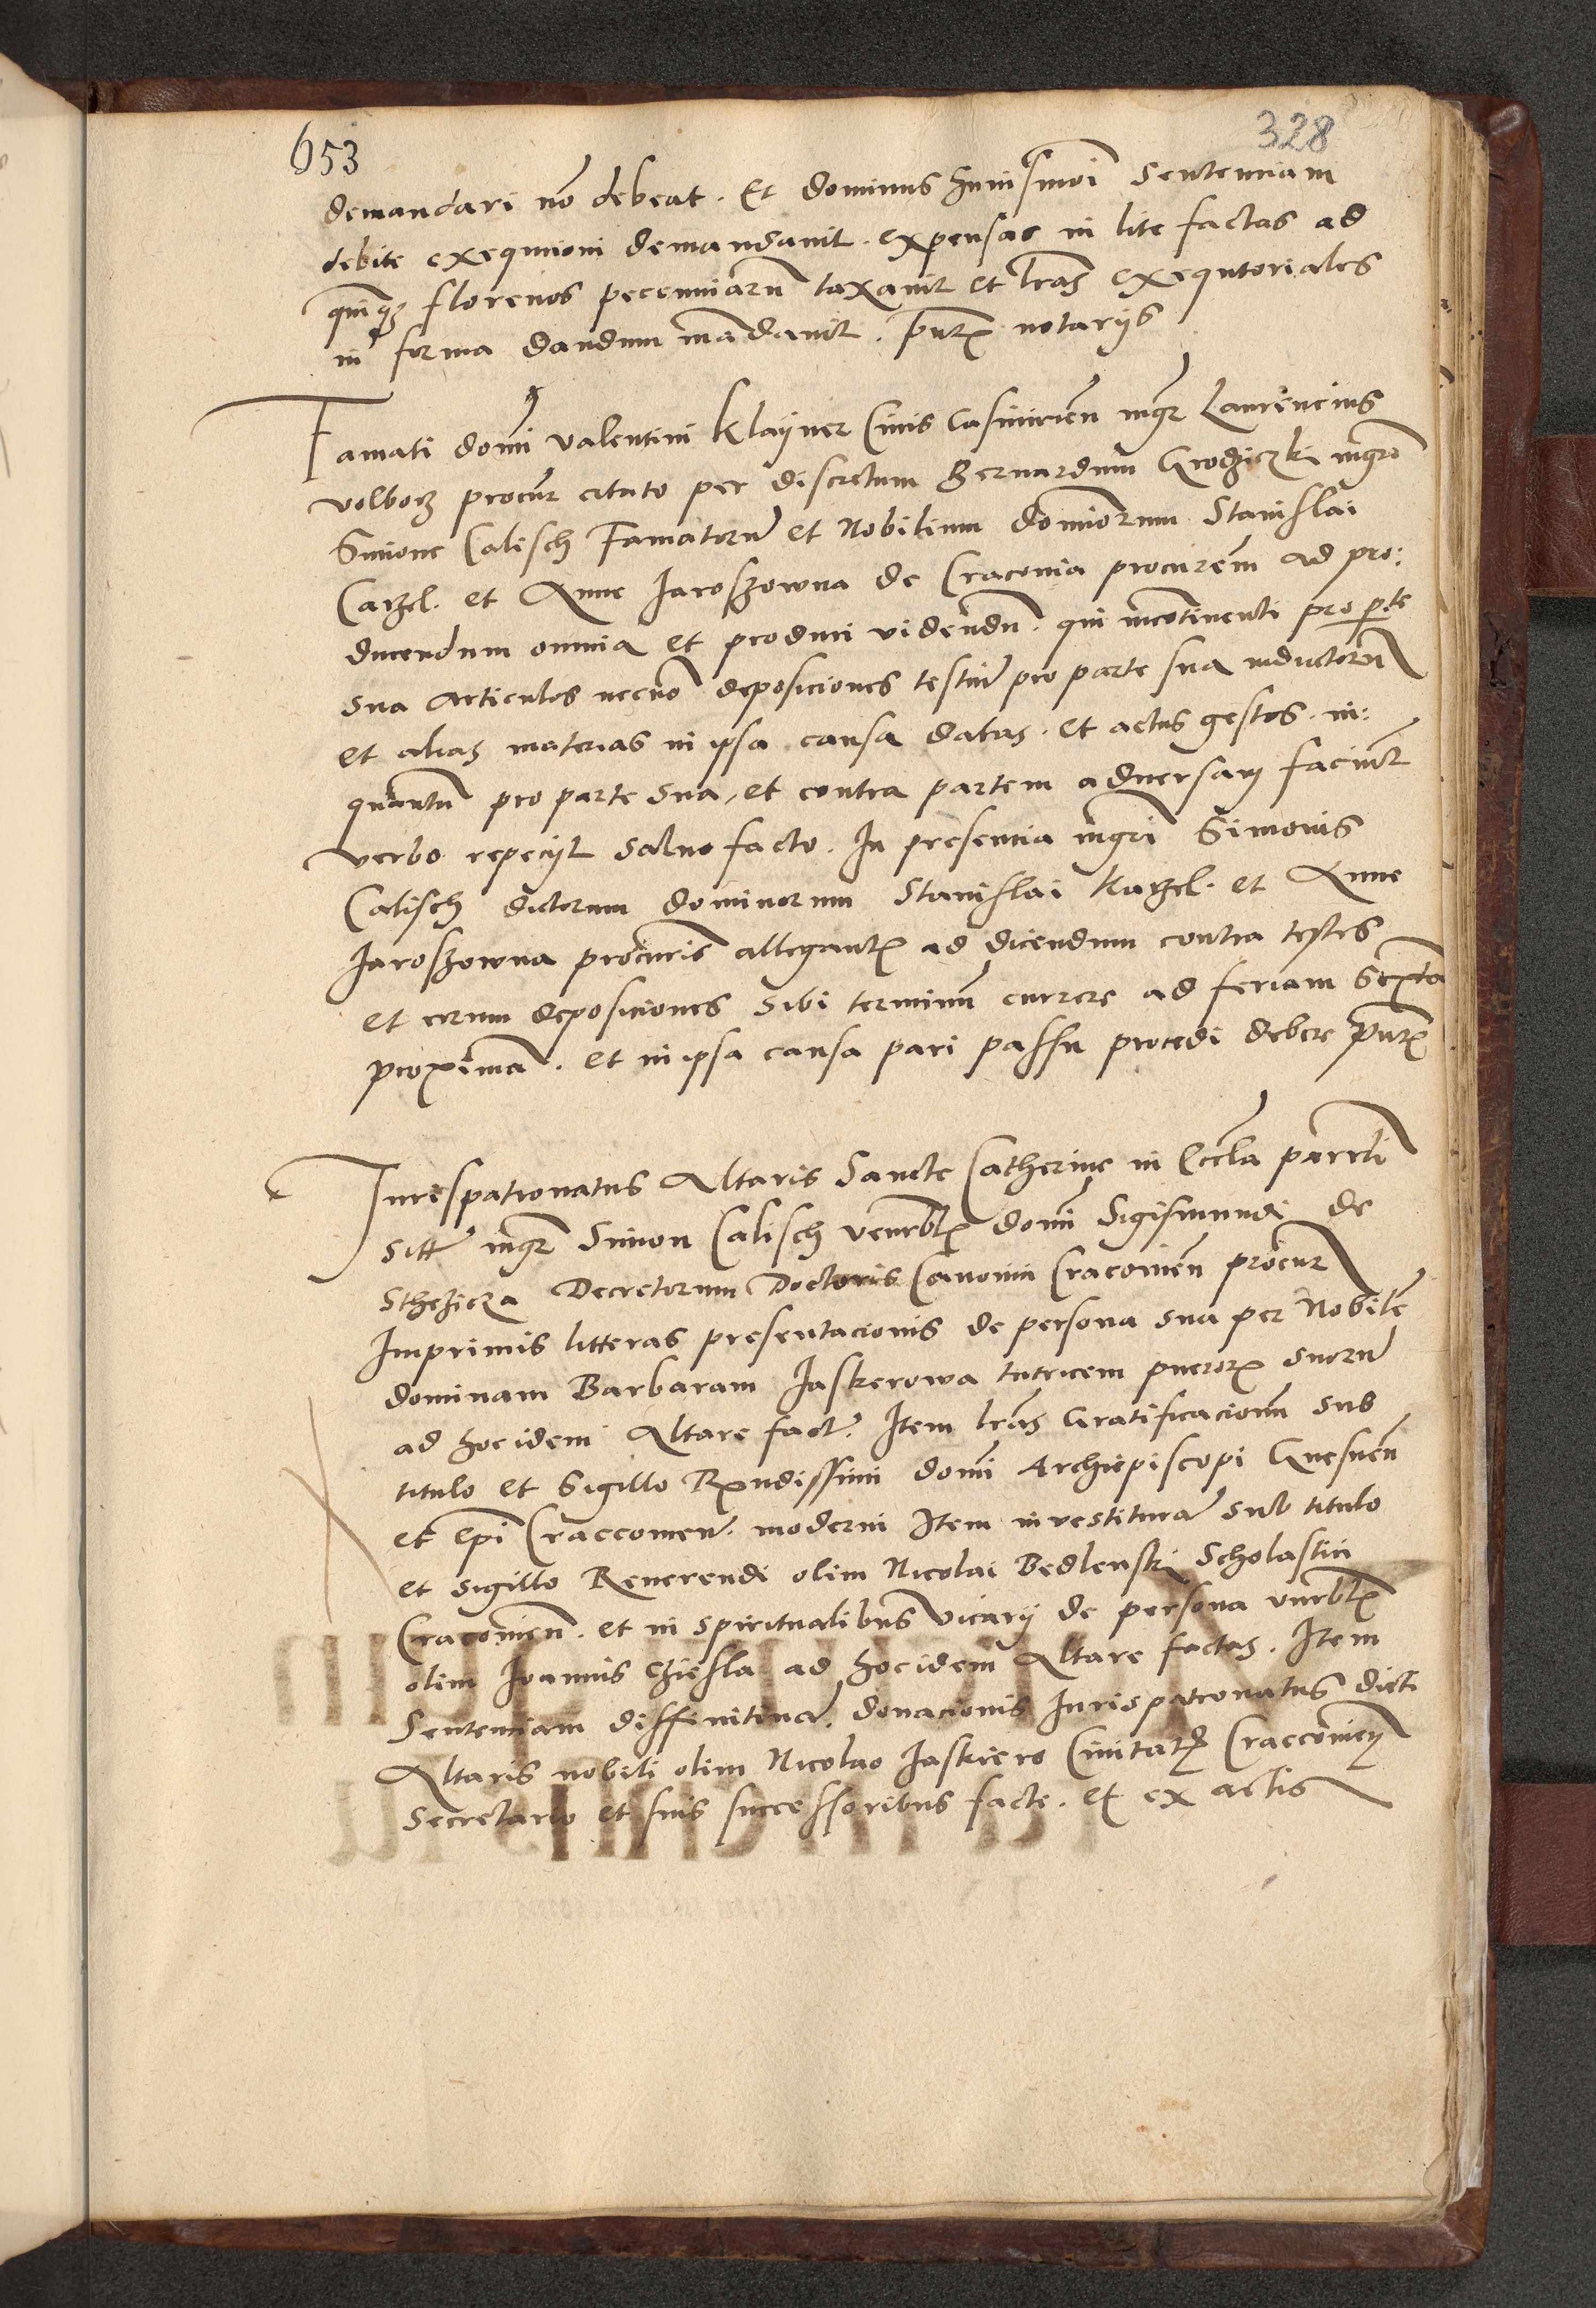 653
328
demandari nō debeat. Et dominus huiusmoi Sentenciam
debite exequucioni demandavit. expensas in lite factas ad
quinqz florenos pecuniarū taxavit et lras exequtoriales
in forma dandum mādavit. pntx notarijs
Famati domi valentini Klayner Civis Casimirien mgr Laurencius
volborz procur citato per discretum Bernardum Grodziczki mgro
Simone Calisch Famatorū et Nobilium dominorum Stanislai
Carzel. et Anne Jaroszowna de Cracovia procurem ad pro:
ducendum omnia et produci videndū. qui incōtinenti pro pte
sua articulos necnō deposiciones testiū pro parte sua inductorū
et alias materias in ipsa causa datas. et actus gestos. in:
quantū pro parte sua, et contra partem adversam faciūt
verbo repecijt salvo facto. In presencia mgri Simonis
Calisch dictorum dominorum Stanislai Karzel. et Anne
Jaroszowna procuris allegantx ad dicendum contra testes
et eorum deposiciones sibi terminū currere ad feriam Sextā
proximā. et in ipsa causa pari passu procedi debere pntx
Jurispatronatus Altaris Sancte Catherine in Eccla parrli
sitt mgr Simon Calisch venrblx domi Sigismundi de
Sthezicza Decretorum Doctoris Canonici Cracovien procur
Imprimis litteras presentacionis de persona sua per Nobilē
dominam Barbaram Jaskerowa tutricem puerorx suorū
ad hocidem Altare fact. Item lras Gratificacionū sub
titulo et Sigillo Rxndissimi domi Archiepiscopi Gnesnen
et epi Craccovien. moderni Item investiturā sub titulo
et sigillo Reverendi olim Nicolai Bedlenski Scholastici
Cracovien. et in spiritualibus vicarij de persona vnrblx
olim Joannis Cziesla ad hocidem Altare factas. Item
Sentenciam diffinitivā. donacionis Jurispatronatus dicti
Altaris nobili olim Nicolao Jaskiero Civitatx Craccovien
Secretario et suis successoribus facte. et ex actis